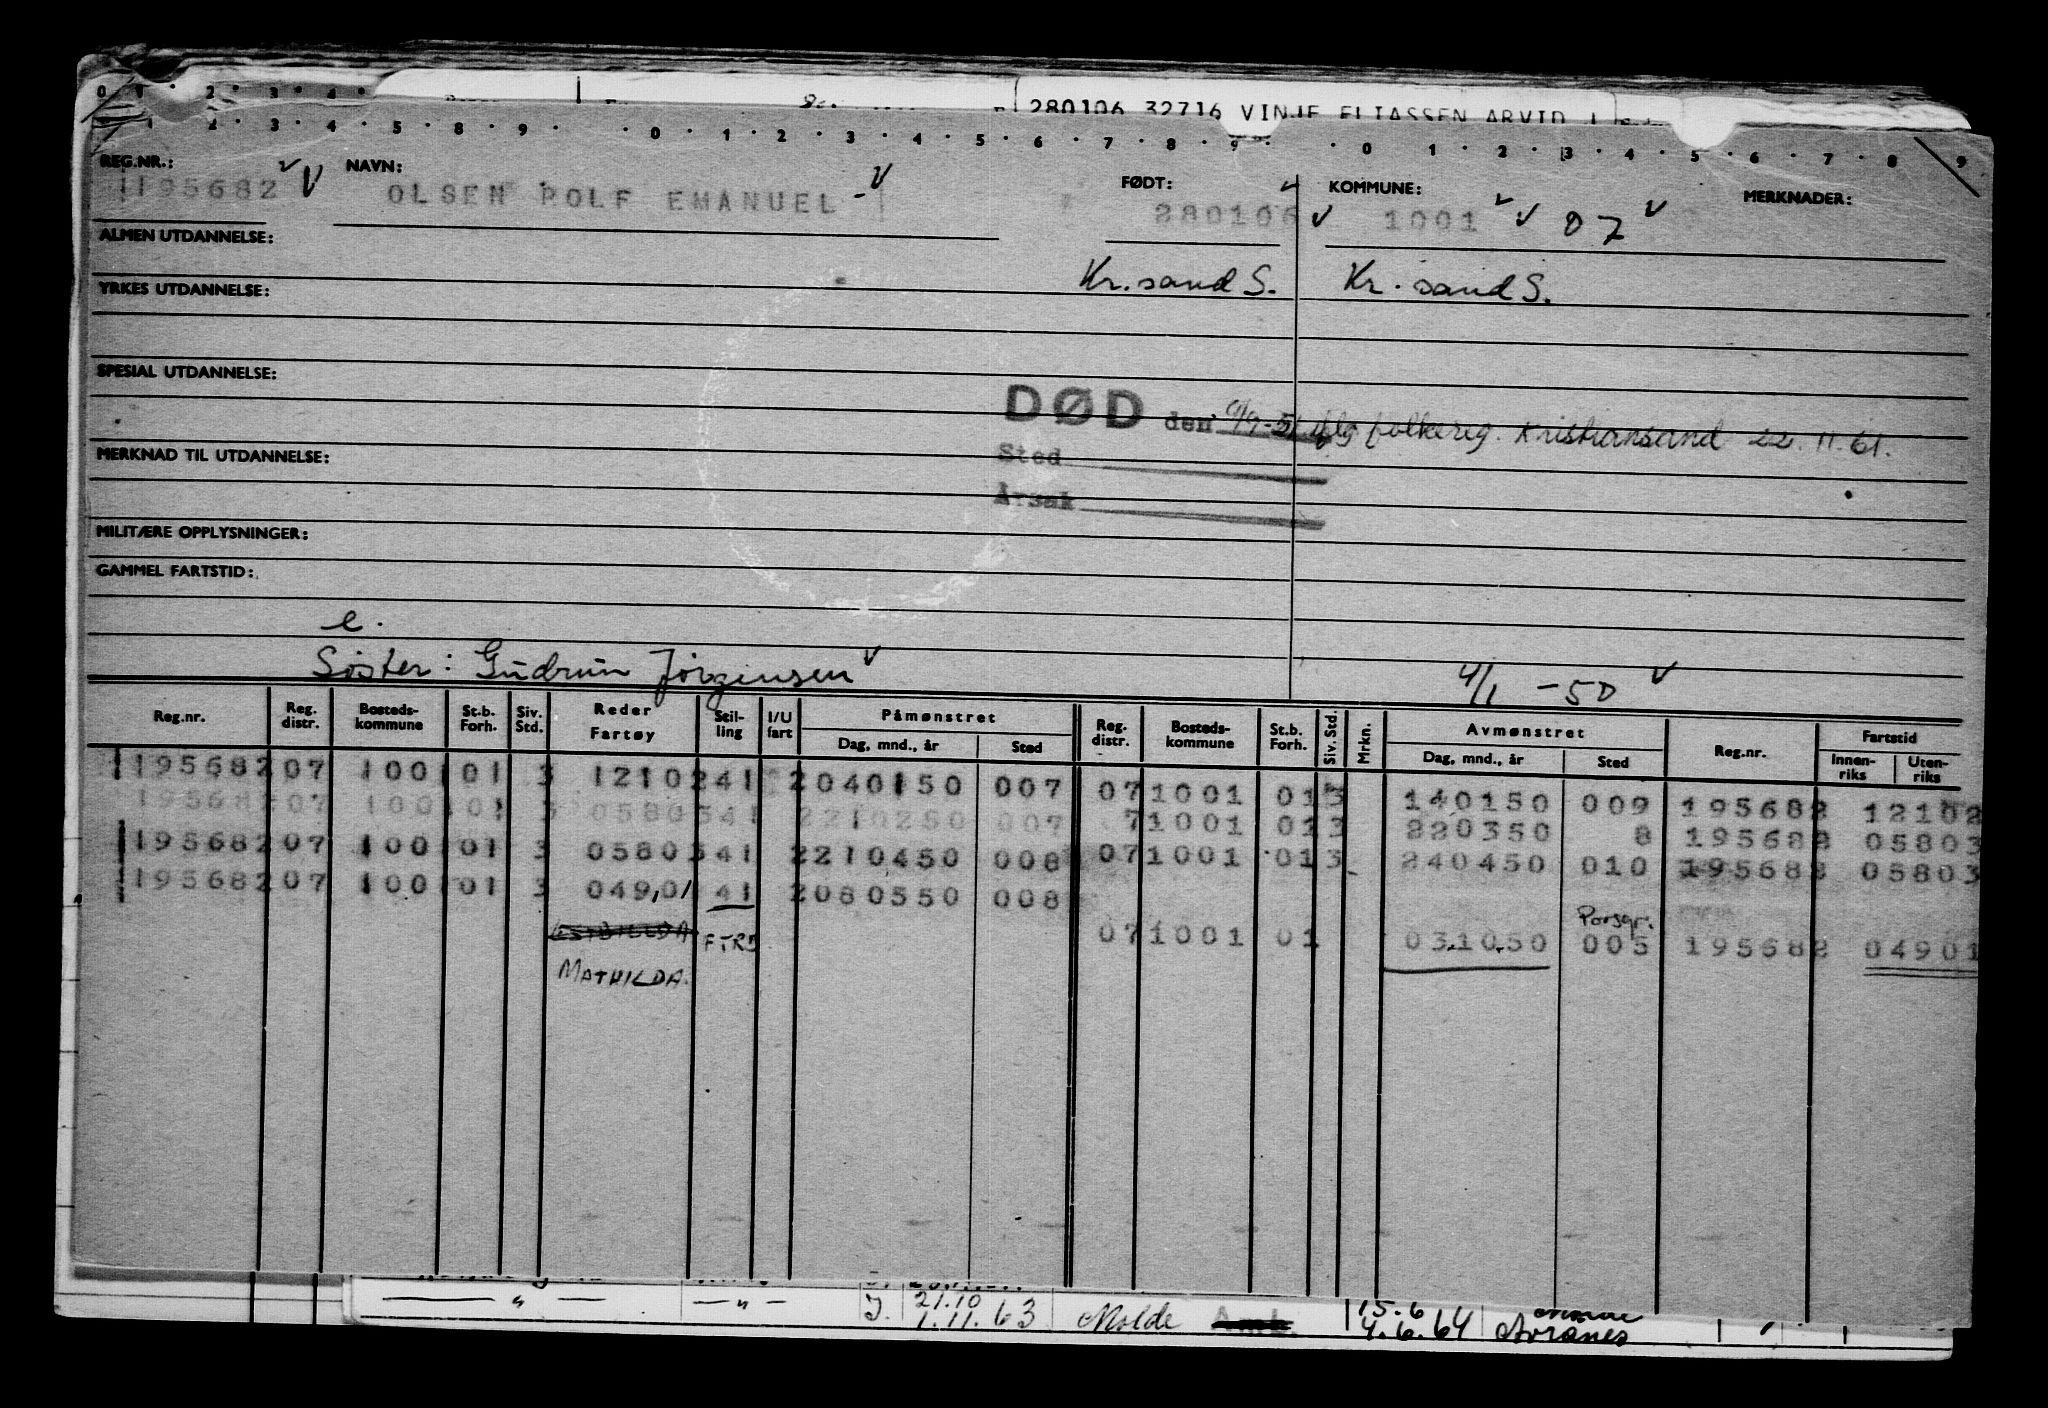 280106 32716 VINJE ELIASSEN ARVID J
0 1 2 3 4
1 · 2 · 3 · 4 · 5 · 8 · 9 · · 0 · 1 · 2 · 3 · 4 · 5 · 6 · 7 · 8 · 9 · · 0 · 1 · 2 · 3 · 4 · 5 · 6 · 7 · 8 · 9
REG.NR.: NAVN: FØDT: KOMMUNE: MERKNADER:
195682 OLSEN ROLF EMANUEL 280106 1001 07
ALMEN UTDANNELSE:
Kr.sand S. Kr. sand S.
YRKES UTDANNELSE:
SPESIAL UTDANNELSE:
DØD den 9/9-51 iflg folkereg. Kristiansand 22.11.61.
Sted
MERKNAD TIL UTDANNELSE:
Årsak
MILITÆRE OPPLYSNINGER:
GAMMEL FARTSTID:
e.
Søster: Gudrun Jörgensen 4/1 -50
Reg.nr. Reg. distr. Bosteds- kommune St.b. Forh. Siv. Std. Reder Fartøy Stil- ling I/U fart Påmønstret Dag, mnd., år Sted Reg. distr. Bosteds- kommune St.b. Forh. Siv. Std. Mrkn. Avmønstret Dag, mnd., år Sted Reg.nr. Fartstid Innen- riks Uten- riks
195682 07 1001 01 3 12102 41 2 040150 007 07 1001 01 3 140150 009 195682 12102
195682 07 1001 01 3 05803 41 2 210250 007 7 1001 01 3 220350 8 195682 05803
195682 07 1001 01 3 05803 41 2 210450 008 07 1001 01 3 240450 010 195682 05803
195682 07 1001 01 3 04901 41 2 080550 008
Porsgr.
FTRB 07 1001 01 031050 005 195682 04901
MATHILDA.
— " — — " — J. 21.10 1.11.63 Molde Amb. 15.6 4.6.64